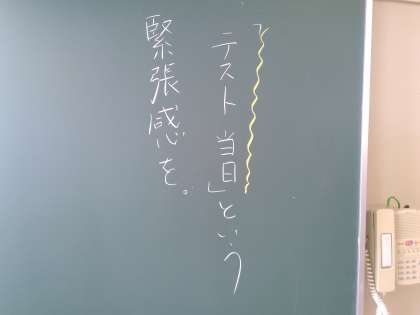 「テスト当日」という
緊張感を。